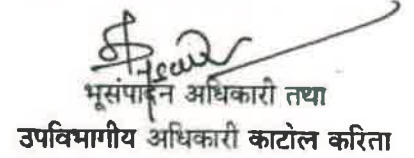 भूसंपादन अधिकारी तथा
उपविभागीय अधिकारी काटोल करिता